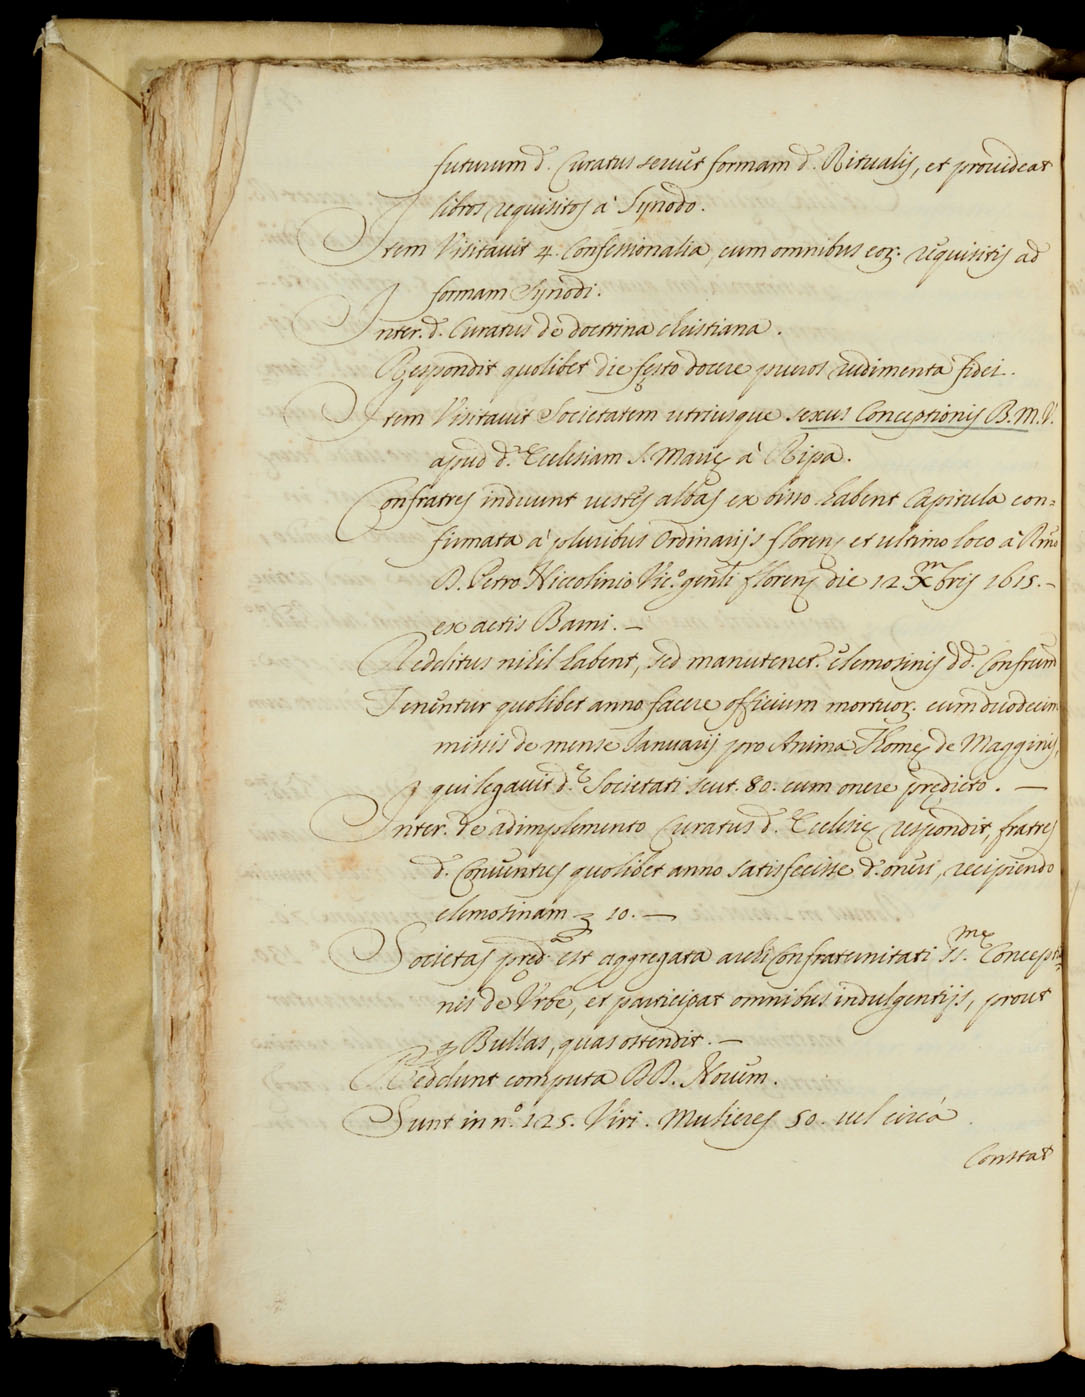 futurum d. Curatus servet formam d. Ritualis, et provideat
libros requisitos à Synodo.
Item Visitavit 4. Confessionalia, cum omnibus eor. requisitis ad
formam Synodi.
Inter. d. Curatus de doctrina christiana.
Respondit quolibet die festo docere pueros rudimenta fidei.
Item Visitavit Societatem utriusque sexus Conceptionis B. M. V.
apud d. Ecclesiam S. Marię à Ripa.
Confratres induunt vestes albas ex bisso habent Capitula con=
firmata à pluribus Ordinarijs floren et ultimo loco à Rmo
D. Petro Niccolinio Vic.º genli floren die 12 Xmbris 1615.-
ex actis Barni. -
Redditus nihil habent, sed manutenet. elemosinis dd. Confrum
Tenentur quolibet anno facere officium mortuor. cum duodecim
missis de mense Ianuarij pro Anima Thomę de Magginis,
qui legavit d. Societati scut. 80. cum onere prędicto. -
Inter. de adimplemento Curatus d. Ecclesię respondit, fratres
d. Conventus quolibet anno satisfecisse d. oneri, recipiendo
elemosinam 10. -
Societas pręd. est aggregata archiConfraternitati SS.mę Conceptio=
nis de Urbe, et participat omnibus indulgentijs, prout
Bullas, quas ostendit. -
Reddunt computa DD. Novem.
Sunt in n.º 125. Viri. Mulieres 50. vel circà.
Constat